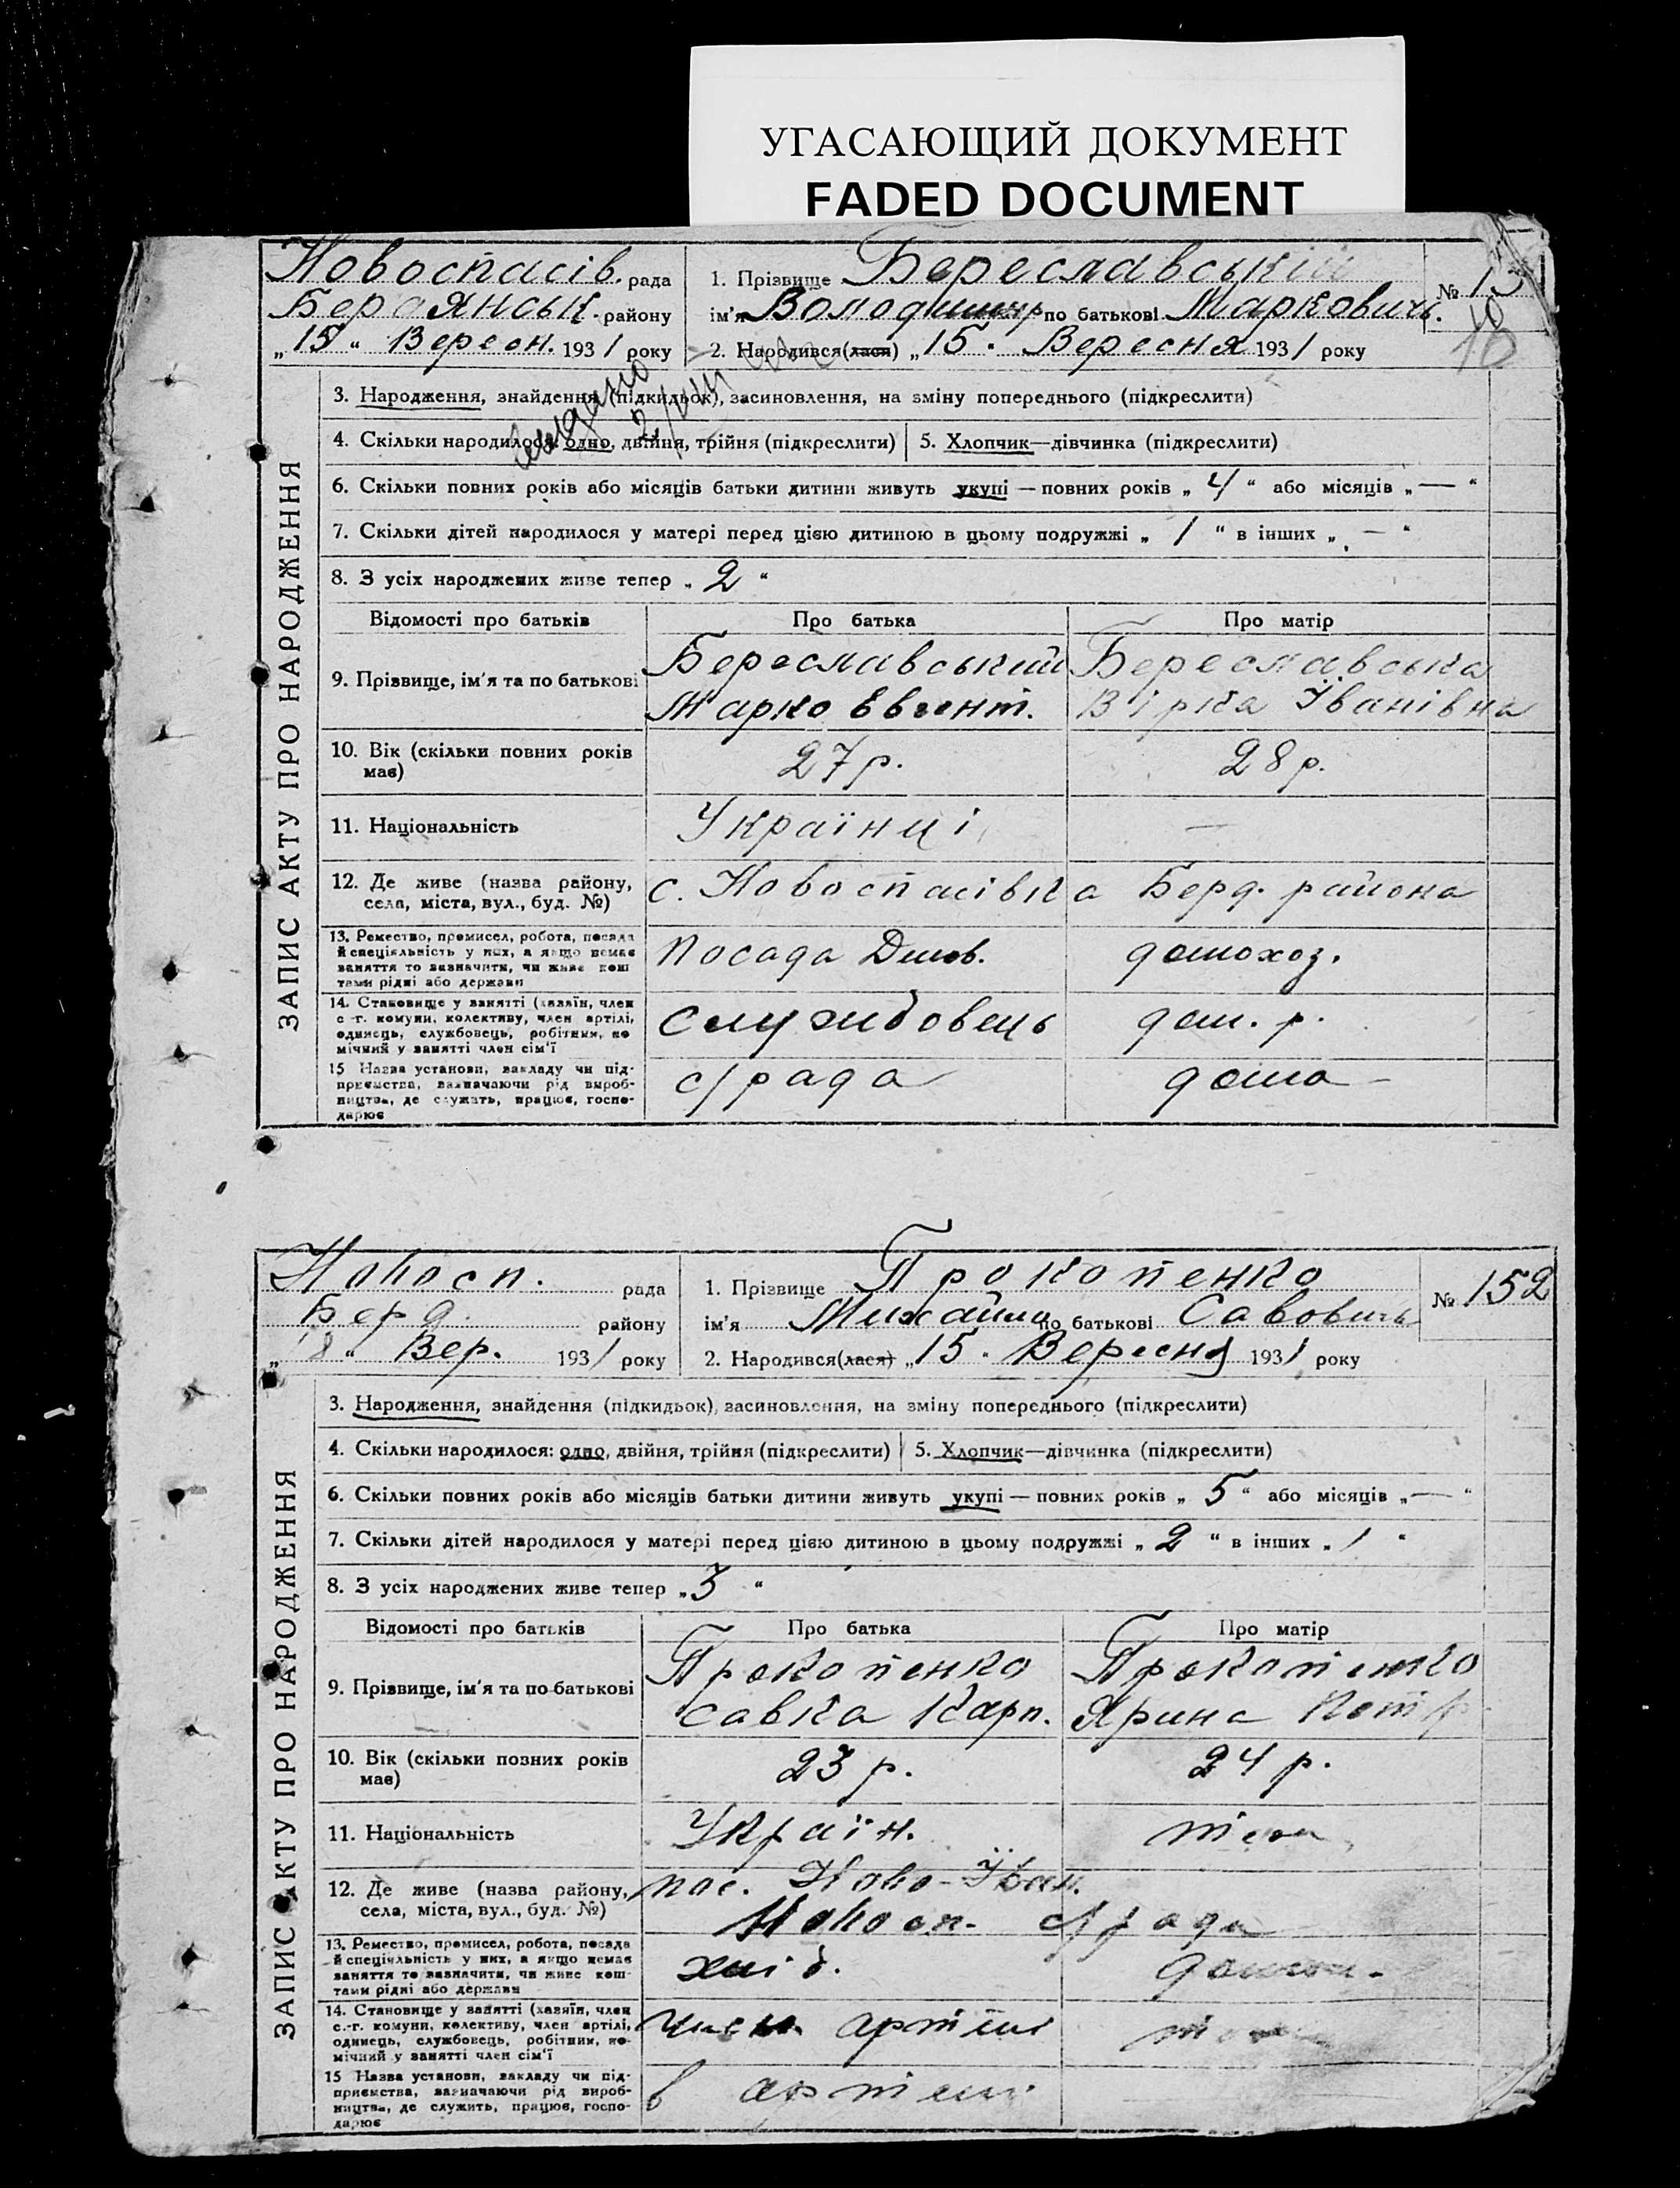 УГАСАЮЩИЙ ДОКУМЕНТ
FADED DOCUMENT
Новоспасів. рада
Бердянськ. району
„15“ Вересн. 1931 року
1. Прізвище Береславський
ім'я Володимир по батькові Маркович.
2. Народився(лася) „15“ Вересня 1931 року
№ 15
18
ЗАПИС АКТУ ПРО НАРОДЖЕННЯ
3. Народження, знайдення (підкидьок), засиновлення, на зміну попереднього (підкреслити)
4. Скільки народилося: одно, двійня, трійня (підкреслити) 5. Хлопчик—дівчинка (підкреслити)
6. Скільки повних років або місяців батьки дитини живуть укупі — повних років „4“ або місяців „—“
7. Скільки дітей народилося у матері перед цією дитиною в цьому подружжі „1“ в інших „—“
8. З усіх народжених живе тепер „2“
Відомості про батьків Про батька Про матір
9. Прізвище, ім'я та по батькові
Береславський Береславська
Марко Евгент. Вірка Іванівна
10. Вік (скільки повних років має) 27 р. 28 р.
11. Національність Українці —
12. Де живе (назва району, села, міста, вул., буд. №) с. Новоспасівка Берд. района
13. Ремество, промисел, робота, посада й спеціяльність у них, а якщо немає заняття то зазначити, чи живе коштами рідні або держави
посада домох.
14. Становище у занятті (хазяїн, член с.-г. комуни, колективу, член артілі, одинець, службовець, робітник, помічний у занятті член сім'ї
Службовець дом. р.
15 Назва установи, закладу чи підприємства, зазначаючи рід виробництва, де служить, працює, господарює
с/рада дома —
Новосп. рада
Берд. району
„18“ Вер. 1931 року
1. Прізвище Прокопенко
ім'я Михайло по батькові Савович
2. Народився(лася) „15“ Вересня 1931 року
№ 152
ЗАПИС АКТУ ПРО НАРОДЖЕННЯ
3. Народження, знайдення (підкидьок), засиновлення, на зміну попереднього (підкреслити)
4. Скільки народилося: одно, двійня, трійня (підкреслити) 5. Хлопчик—дівчинка (підкреслити)
6. Скільки повних років або місяців батьки дитини живуть укупі — повних років „5“ або місяців „—“
7. Скільки дітей народилося у матері перед цією дитиною в цьому подружжі „2“ в інших „1“
8. З усіх народжених живе тепер „3“
Відомості про батьків Про батька Про матір
9. Прізвище, ім'я та по батькові
Прокопенко Прокопенко
Савка Карп. Ярина Петр
10. Вік (скільки повних років має) 23 р. 24 р.
11. Національність Україн.
12. Де живе (назва району, села, міста, вул., буд. №)
пос. Ново-Іван.
Новосп. с/рада
13. Ремество, промисел, робота, посада й спеціяльність у них, а якщо немає заняття то зазначити, чи живе коштами рідні або держави
хліб.
14. Становище у занятті (хазяїн, член с.-г. комуни, колективу, член артілі, одинець, службовець, робітник, помічний у занятті член сім'ї
член артілі
15 Назва установи, закладу чи підприємства, зазначаючи рід виробництва, де служить, працює, господарює
в артілі